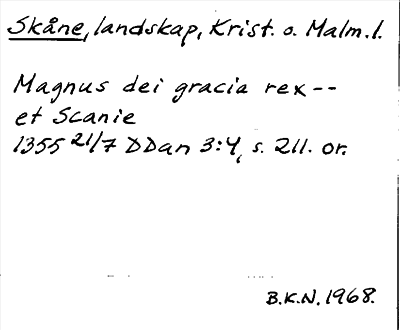 Skåne, landskap, Krist. o. Malm. l.
Magnus dei gracia rex --
et Scanie
1355 21/7 DDan 3:4, s. 211. or.
B.K.N. 1968.